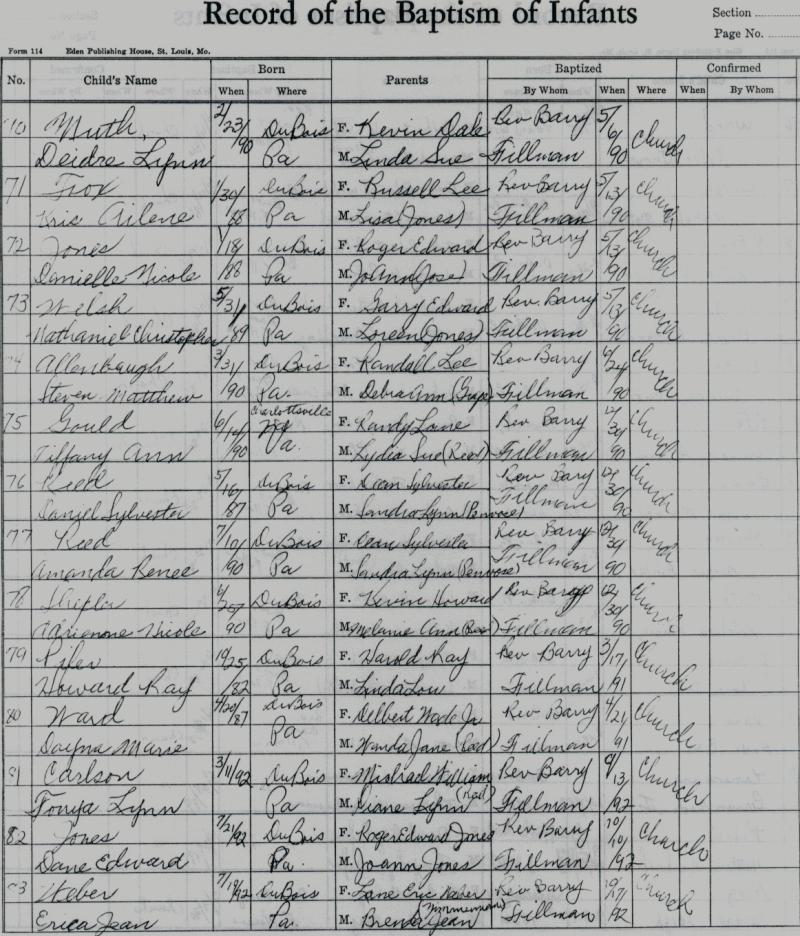 Record of the Baptism of Infants
Section
Page No.
Form 114 Eden Publishing House, St. Louis, Mo.
No. Child's Name Born Parents Baptized Confirmed
When Where By Whom When Where When By Whom
70 Muth, 2/23/ DuBois F. Kevin Dale Rev Barry 5/6/ Church
Deidre Lynn 90 Pa M. Linda Sue Fillman 90
71 Fox 1/30/ DuBois F. Russell Lee Rev Barry 5/13/ Church
Kris Arlene 88 Pa M. Lisa (Jones) Fillman 90
72 Jones 1/18/ DuBois F. Roger Edward Rev Barry 5/13/ Church
Danielle Nicole 88 Pa M. JoAnn Fillman 90
73 Welsh 5/31/ DuBois F. Garry Edward Rev. Barry 5/13/ Church
Nathaniel Christopher 89 Pa M. Loreen (Jones) Fillman 90
74 Allenbaugh 3/31 DuBois F. Randall Lee Rev Barry 6/24 Church
Steven Matthew 90 Pa. M. Debra Ann Fillman 90
75 Gould 6/14/ Charlottsville F. Randy Lane Rev Barry 12/30 Church
Tiffany Ann 90 Va. M. Lydia Sue (Reed) Fillman 90
76 Reed 5/16/ DuBois F. Dean Sylvester Rev Barry 12/30/ Church
Daniel Sylvester 87 Pa M. Sandra Lynn (Penrose) Fillman 90
77 Reed 7/10/ DuBois F. Dean Sylvester Rev Barry 12/30 Church
Amanda Renee 90 Pa M. Sandra Lynn (Penrose) Fillman 90
78 6/25/ DuBois F. Kevin Howard Rev Barry 12/30/ Church
Adrienne Nicole 90 Pa M. Melanie Ann Fillman 90
79 Pifer 10/25 DuBois F. Harold Ray Rev Barry 3/17/ Church
Howard Ray 82 Pa M. Linda Lou Fillman 91
80 Ward 4/20/87 DuBois F. Delbert Wade Jr Rev Barry 4/21 Church
Dayna Marie Pa M. Wanda Jane Fillman 91
81 Carlson 3/11/92 DuBois F. Michael William Rev Barry 9/13/ Church
Tonya Lynn Pa M. Diane Lynn Fillman 192
82 Jones 7/21/92 DuBois F. Roger Edward Jones Rev Barry 10/ Church
Dane Edward Pa. M. Joann Jones Fillman 192
83 Weber 7/19/92 DuBois F. Lane Eric Weber Rev Barry Church
Erica Jean Pa. M. Brenda Jean (Zimmerman) Fillman 92